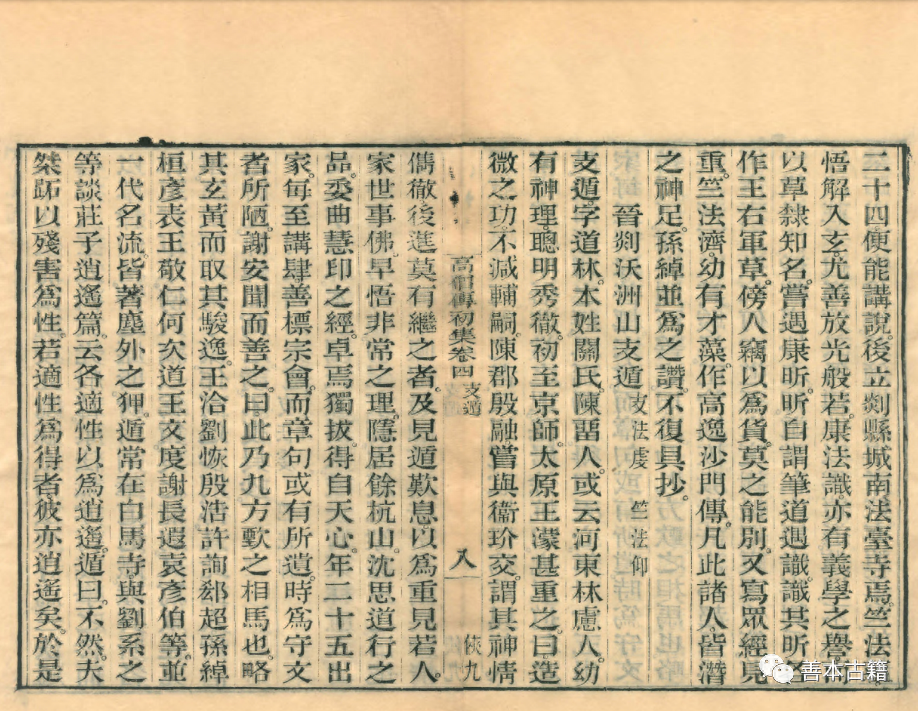 二十四便能講說後立剡縣城南法臺寺焉竺法
悟解入玄尤善放光般若康法識亦有義學之譽
以草隸知名嘗遇康昕昕自謂筆道過識識其昕
作王右軍草傍人竊以爲貨莫之能別又寫眾經見
重竺法濟幼有才藻作高逸沙門傳凡此諸人皆潛
之神足孫綽並爲之讚不復具抄
晉剡沃洲山支遁 支法虔 竺法仰
支遁字道林本姓關氏陳畱人或云河東林慮人幼
有神理聰明秀徹初至京師太原王濛甚重之曰造
微之功不減輔嗣陳郡殷融嘗與衞玠交謂其神情
高僧傳初集卷四 支遁 八 俠九
儁徹後進莫有繼之者及見遁歎息以爲重見若人
家世事佛早悟非常之理隱居餘杭山沈思道行之
品委曲慧印之經卓焉獨拔得自天心年二十五出
家每至講肆善標宗會而章句或有所遺時爲守文
者所陋謝安聞而善之曰此乃九方歅之相馬也略
其玄黃而取其駿逸王洽劉恢殷浩許詢郄超孫綽
桓彥表王敬仁何次道王文度謝長遐袁彥伯等並
一代名流皆著塵外之狎遁常在白馬寺與劉系之
等談莊子逍遙篇云各適性以爲逍遙遁曰不然夫
桀跖以殘害爲性若適性爲得者彼亦逍遙矣於是
善本古籍